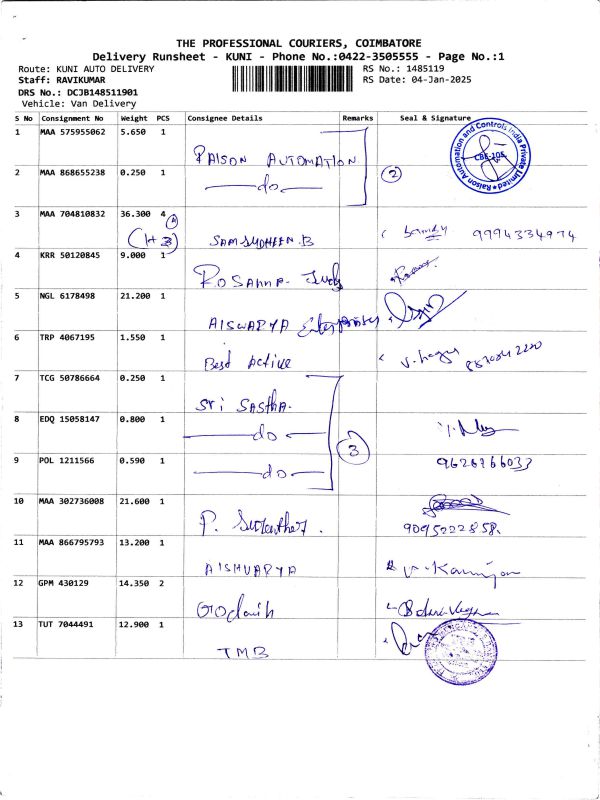 THE PROFESSIONAL COURIERS, COIMBATORE
Delivery Runsheet - KUNI - Phone No.:0422-3505555 - Page No.:1
Route: KUNI AUTO DELIVERY RS No.: 1485119
Staff: RAVIKUMAR RS Date: 04-Jan-2025
DRS No.: DCJB148511901
Vehicle: Van Delivery
S No Consignment No Weight PCS Consignee Details Remarks Seal & Signature
1 MAA 575955062 5.650 1
RAISON AUTOMATION
Raison Automation and Controls India Private Limited
CBE-105
2 MAA 868655238 0.250 1
do
2
3 MAA 704810832 36.300 4
SAMSUDHEEN.B 9994334974
4 KRR 50120845 9.000 1
ROSANNA
5 NGL 6178498 21.200 1
AISWARYA Enterprises
6 TRP 4067195 1.550 1
Best Active
7 TCG 50786664 0.250 1
Sri SASTHA.
8 EDQ 15058147 0.800 1
do
3
9 POL 1211566 0.590 1
do
9626766033
10 MAA 302736008 21.600 1
P. 9095222858.
11 MAA 866795793 13.200 1
AISHVARYA
12 GPM 430129 14.350 2
13 TUT 7044491 12.900 1
TMB